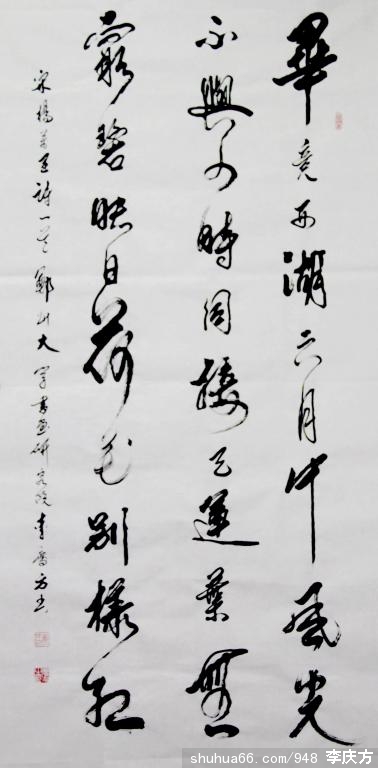 畢竟西湖六月中風光
不與四時同接天蓮葉無
窮碧映日荷花別樣紅
宋楊萬里詩一首鄭州大學書畫研究院李慶方書
shuhua66.com/948 李庆方